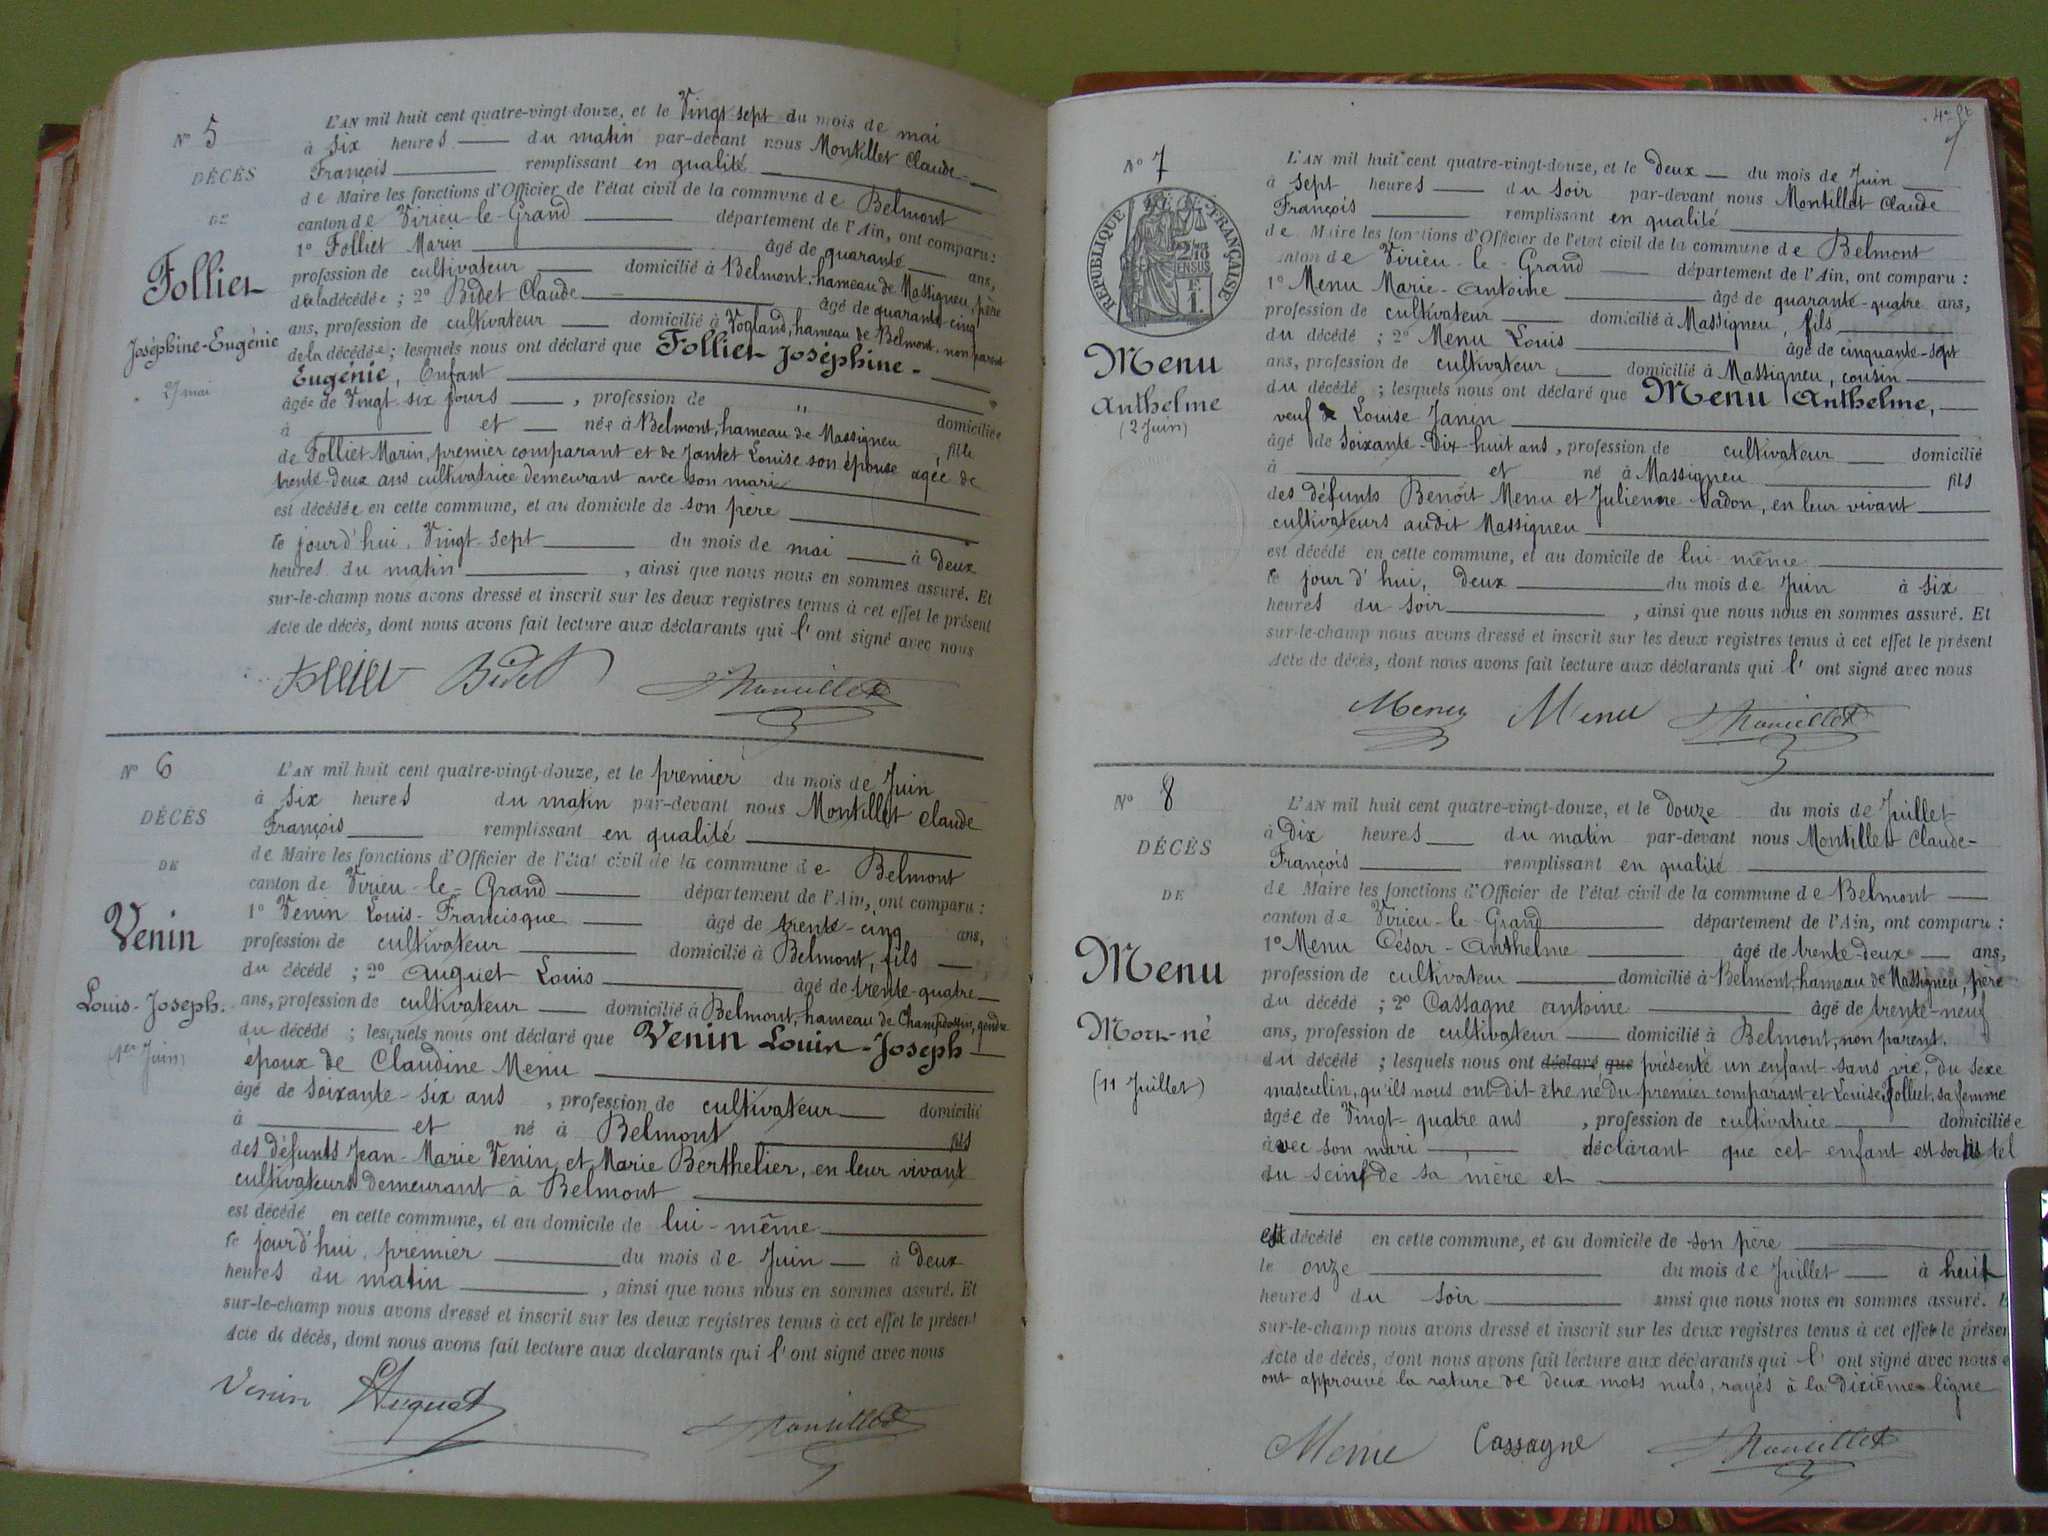 N° 5
DÉCÈS
DE
Folliet
Joséphine-Eugénie
27 mai
L'AN mil huit cent quatre-vingt-douze, et le Vingt-sept du mois de mai
à six heures du matin par-devant nous Montillet Claude-
François remplissant en qualité
de Maire les fonctions d'Officier de l'état civil de la commune de Belmont
canton de Virieu-le-Grand département de l'Ain, ont comparu :
1° Folliet Marin âgé de quarante ans,
profession de cultivateur domicilié à Belmont, hameau de Massigneu, père
de la décédée ; 2° Bidet Claude âgé de quarante-cinq
ans, profession de cultivateur domicilié à Vogland, hameau de Belmont, non parent
de la décédée ; lesquels nous ont déclaré que Folliet Joséphine-
Eugénie, Enfant
âgée de Vingt-six jours , profession de "
à et née à Belmont, hameau de Massigneu domiciliée
fille
de Folliet Marin, premier comparant et de Jantet Louise son épouse agée de
trente-deux ans cultivatrice demeurant avec son mari
est décédée en cette commune, et au domicile de son père
le jourd'hui, Vingt-sept du mois de mai à deux
heures du matin , ainsi que nous nous en sommes assuré. Et
sur-le-champ nous avons dressé et inscrit sur les deux registres tenus à cet effet le présent
Acte de décès, dont nous avons fait lecture aux déclarants qui l'ont signé avec nous
Folliet Bidet Montillet
N° 6
DÉCÈS
DE
Venin
Louis-Joseph.
(1er Juin)
L'AN mil huit cent quatre-vingt-douze, et le premier du mois de Juin
à six heures du matin par-devant nous Montillet Claude
François remplissant en qualité
de Maire les fonctions d'Officier de l'état civil de la commune de Belmont
canton de Virieu-le-Grand département de l'Ain, ont comparu :
1° Venin Louis-Francisque âgé de trente-cinq ans,
profession de cultivateur domicilié à Belmont, fils
du décédé ; 2° Auguet Louis âgé de trente-quatre
ans, profession de cultivateur domicilié à Belmont, hameau de Champdossin, gendre
du décédé ; lesquels nous ont déclaré que Venin Louis-Joseph
époux de Claudine Menu
âgé de soixante-six ans , profession de cultivateur domicilié
à et né à Belmont fils
des défunts Jean-Marie Venin et Marie Berthelier, en leur vivant
cultivateurs demeurant à Belmont
est décédé en cette commune, et au domicile de lui-même
le jourd'hui, premier du mois de Juin à deux
heures du matin , ainsi que nous nous en sommes assuré. Et
sur-le-champ nous avons dressé et inscrit sur les deux registres tenus à cet effet le présent
Acte de décès, dont nous avons fait lecture aux déclarants qui l'ont signé avec nous
Venin Auguet Montillet
7
N° 7
RÉPUBLIQUE FRANÇAISE
2/10
EN SUS
F.
1.
Menu
Anthelme
(2 Juin)
L'AN mil huit cent quatre-vingt-douze, et le deux du mois de Juin
à sept heures du soir par-devant nous Montillet Claude
François remplissant en qualité
de Maire les fonctions d'Officier de l'état civil de la commune de Belmont
canton de Virieu-le-Grand département de l'Ain, ont comparu :
1° Menu Marie-Antoine âgé de quarante-quatre ans,
profession de cultivateur domicilié à Massigneu, fils
du décédé ; 2° Menu Louis âgé de cinquante-sept
ans, profession de cultivateur domicilié à Massigneu, cousin
du décédé ; lesquels nous ont déclaré que Menu Anthelme,
veuf Louise Janin
âgé de soixante-Dix-huit ans, profession de cultivateur domicilié
à et né à Massigneu fils
des défunts Benoit Menu et Julienne Vadon, en leur vivant
cultivateurs audit Massigneu
est décédé en cette commune, et au domicile de lui-même
le jourd'hui, deux du mois de Juin à six
heures du soir , ainsi que nous nous en sommes assuré. Et
sur-le-champ nous avons dressé et inscrit sur les deux registres tenus à cet effet le présent
Acte de décès, dont nous avons fait lecture aux déclarants qui l'ont signé avec nous
Menu Menu Montillet
N° 8
DÉCÈS
DE
Menu
Mort-né
(11 Juillet)
L'AN mil huit cent quatre-vingt-douze, et le douze du mois de Juillet
à Dix heures du matin par-devant nous Montillet Claude-
François remplissant en qualité
de Maire les fonctions d'Officier de l'état civil de la commune de Belmont
canton de Virieu-le-Grand département de l'Ain, ont comparu :
1° Menu César-Anthelme âgé de trente-deux ans,
profession de cultivateur domicilié à Belmont, hameau de Massigneu, père
du décédé ; 2° Cassagne Antoine âgé de trente-neuf
ans, profession de cultivateur domicilié à Belmont, non parent.
du décédé ; lesquels nous ont déclaré que présenté un enfant sans vie, du sexe
masculin, qu'ils nous ont dit être né du premier comparant et Louise Folliet, sa femme
âgée de Vingt-quatre ans , profession de cultivatrice domiciliée
avec son mari , déclarant que cet enfant est sorti tel
du sein de sa mère et
est décédé en cette commune, et au domicile de son père
le onze du mois de Juillet à huit
heures du soir ainsi que nous nous en sommes assuré. E
sur-le-champ nous avons dressé et inscrit sur les deux registres tenus à cet effet le présen
Acte de décès, dont nous avons fait lecture aux déclarants qui l'ont signé avec nous e
ont approuvé la rature de deux mots nuls, rayés à la dixième ligne
Menu Cassagne Montillet